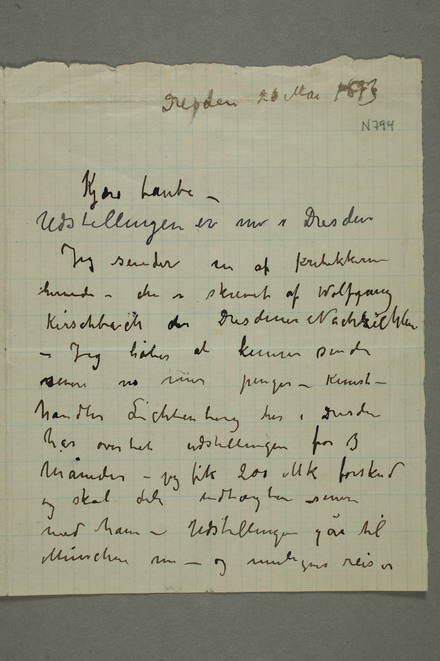 Dresden 26 Mai 1893
N794
Kjære tante –
Udstillingen er nu i Dresden
Jeg sender en af kritikkerne
herned – den er skrevet af Wolfgang
Kirschbach der Dresdener Nachrichten
– Jeg håber at kunne sende
senere no mer penger – Kunst–
handler Lichtenberg her i Dresden
har overtat udstillingen for 3
Måneder – jeg fik 200 Mk forskud
og skal dele indtægten senere
med ham – Udstillingen går til
München nu – og muligens reiser